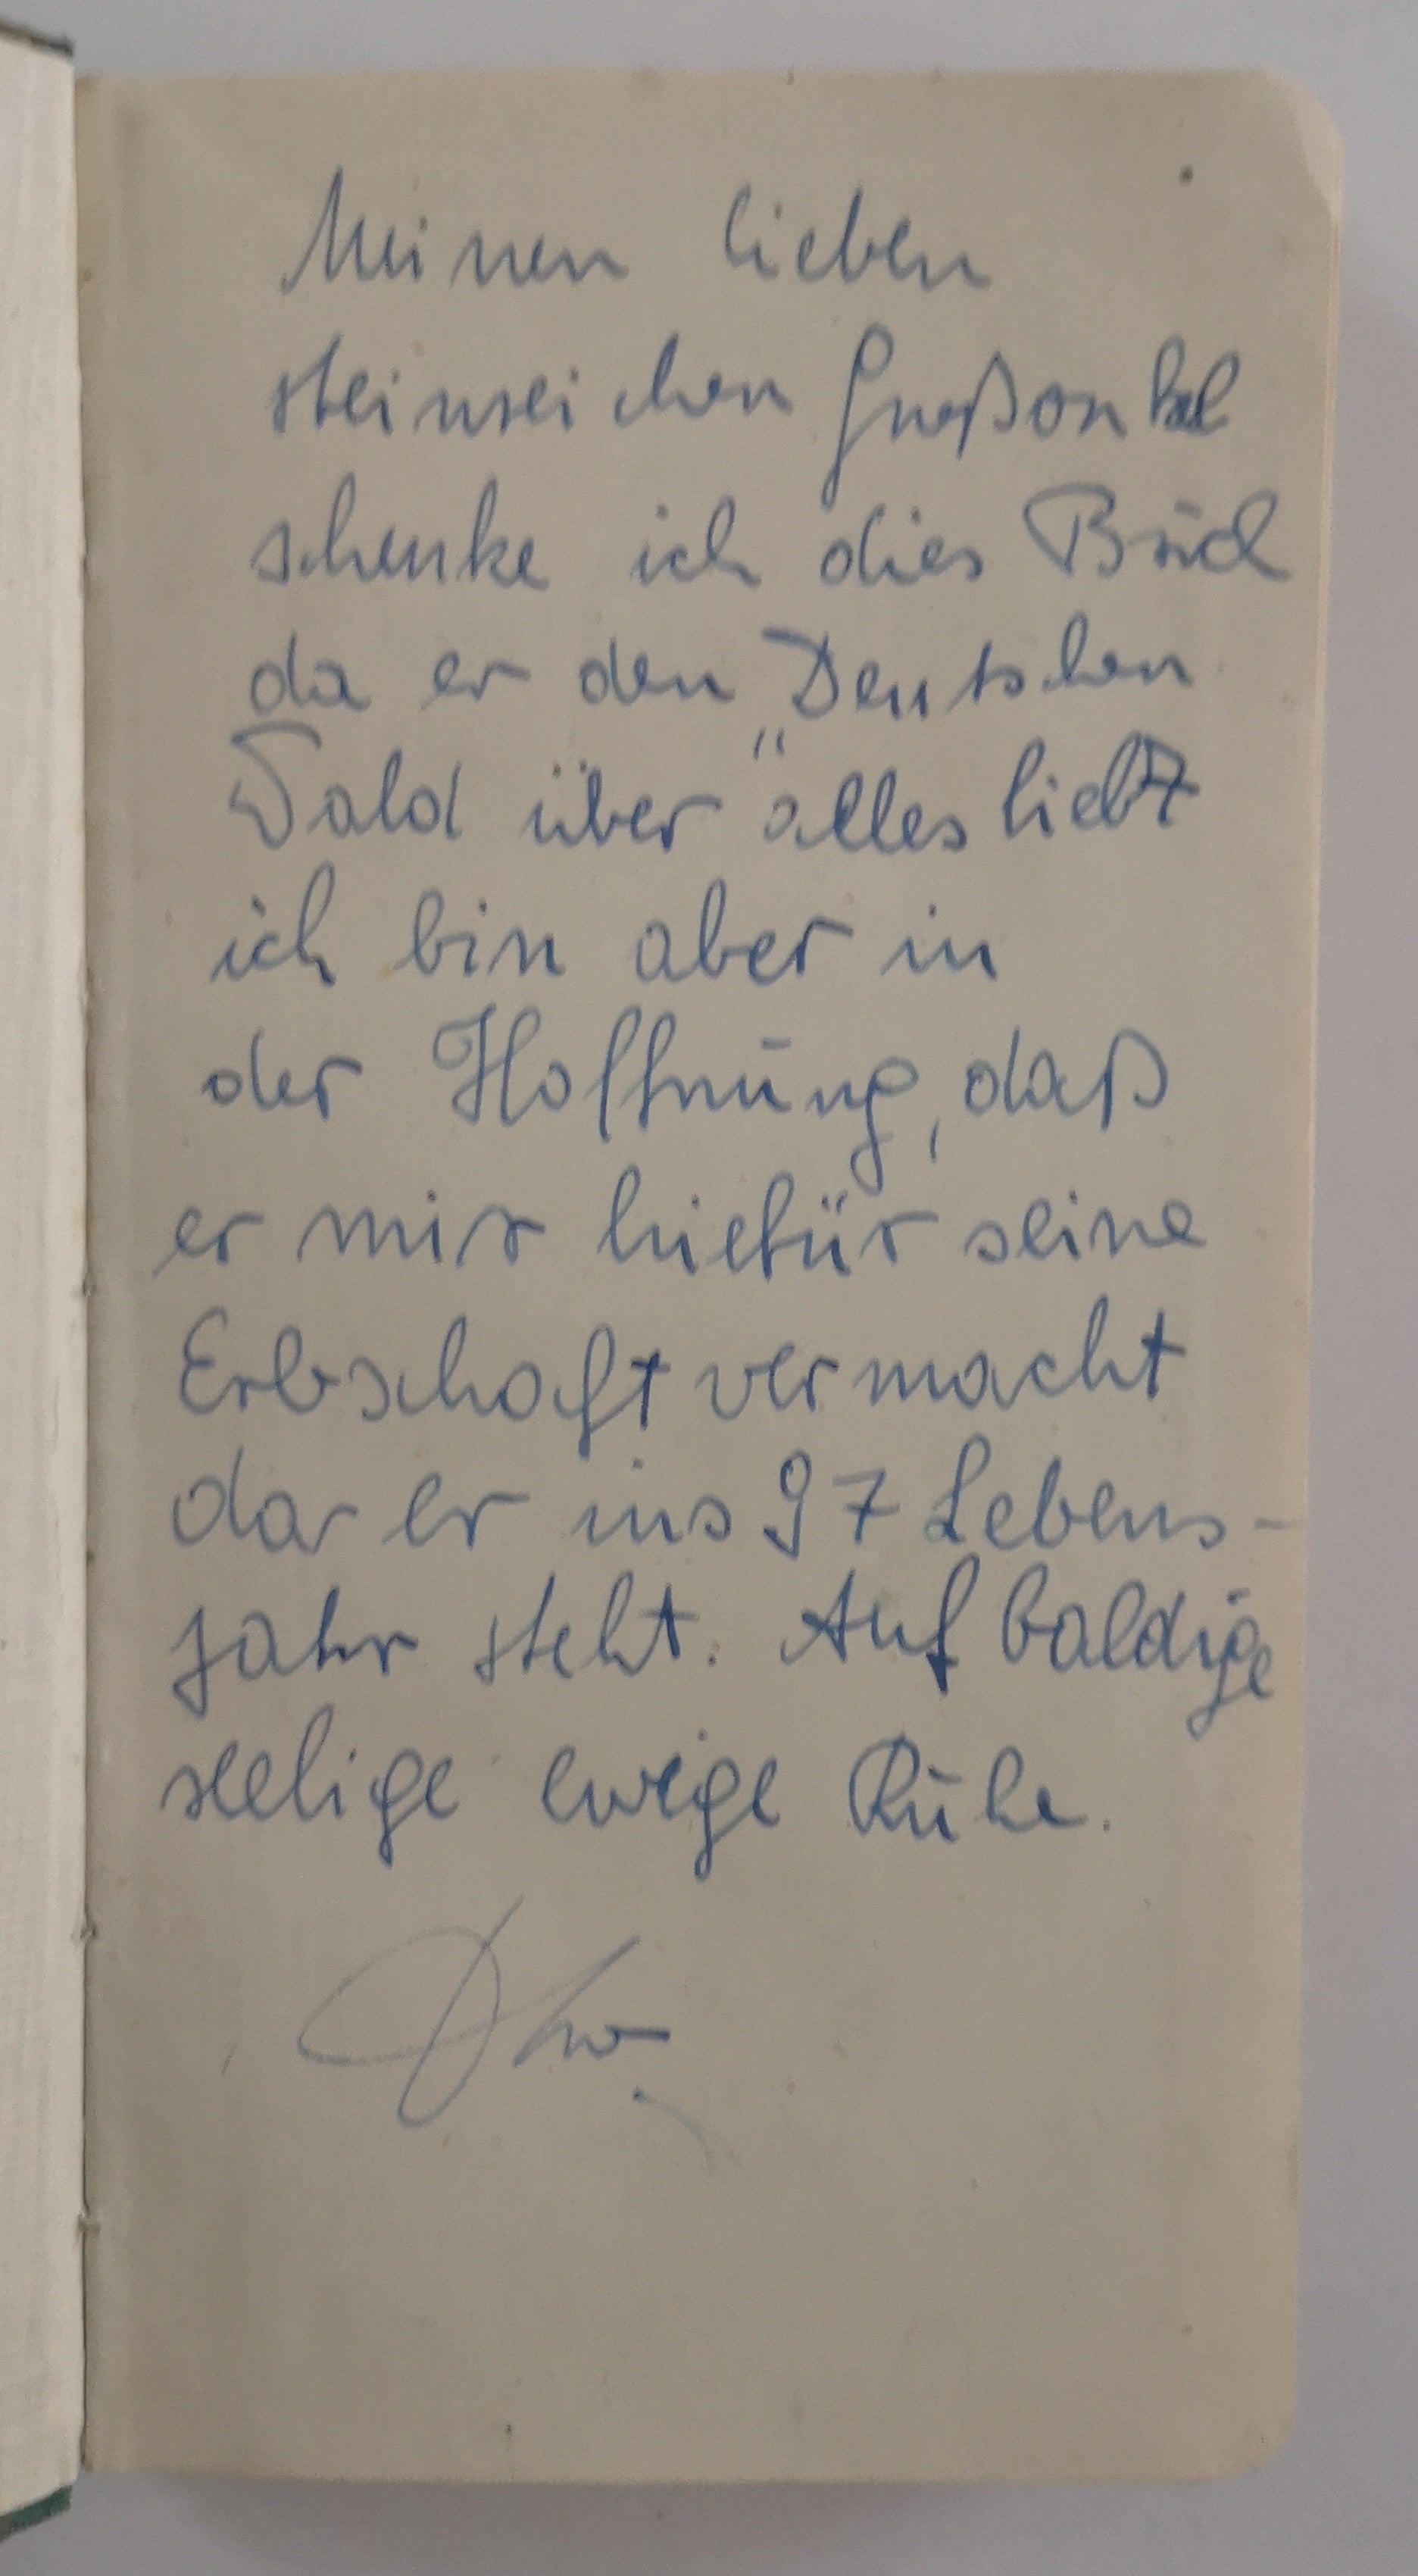 Meinen lieben
steinreichen Großonkel
schenke ich dies Buch
da er den Deutschen
Wald über "alles liebt
ich bin aber in
der Hoffnung, daß
er mir hiefür seine
Erbschaft vermacht
da er ins 97 Lebens-
jahr steht. Auf baldige
seelige ewige Ruhe.